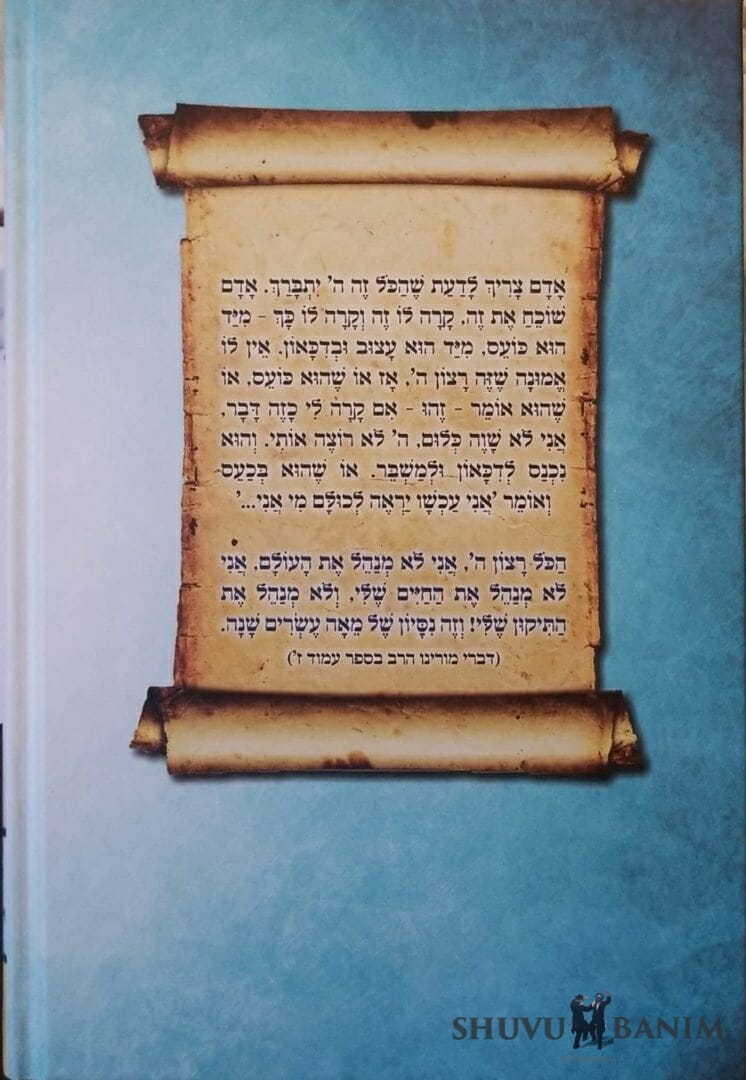 אָדָם צָרִיךְ לָדַעַת שֶׁהַכֹּל זֶה ה' יִתְבָּרַךְ. אָדָם
שׁוֹכֵחַ אֶת זֶה, קָרָה לוֹ זֶה וְקָרָה לוֹ כָּךְ - מִיַּד
הוּא כּוֹעֵס, מִיַּד הוּא עָצוּב וּבְדִכָּאוֹן. אֵין לוֹ
אֱמוּנָה שֶׁזֶּה רָצוֹן ה', אָז אוֹ שֶׁהוּא כּוֹעֵס, אוֹ
שֶׁהוּא אוֹמֵר - זֶהוּ - אִם קָרָה לִי כָזֶה דָּבָר,
אֲנִי לֹא שָׁוֶה כְּלוּם, ה' לֹא רוֹצֶה אוֹתִי. וְהוּא
נִכְנַס לְדִכָּאוֹן וּלְמַשְׁבֵּר. אוֹ שֶׁהוּא בְּכַעַס
וְאוֹמֵר 'אֲנִי עַכְשָׁו יַרְאֶה לְכוּלָּם מִי אֲנִי...'
הַכֹּל רָצוֹן ה', אֲנִי לֹא מְנַהֵל אֶת הָעוֹלָם, אֲנִי
לֹא מְנַהֵל אֶת הַחַיִּים שֶׁלִּי, וְלֹא מְנַהֵל אֶת
הַתִּיקוּן שֶׁלִּי! וְזֶה נִסָּיוֹן שֶׁל מֵאָה עֶשְׂרִים שָׁנָה.
(דברי מורינו הרב בספר עמוד ז')
SHUVU BANIM